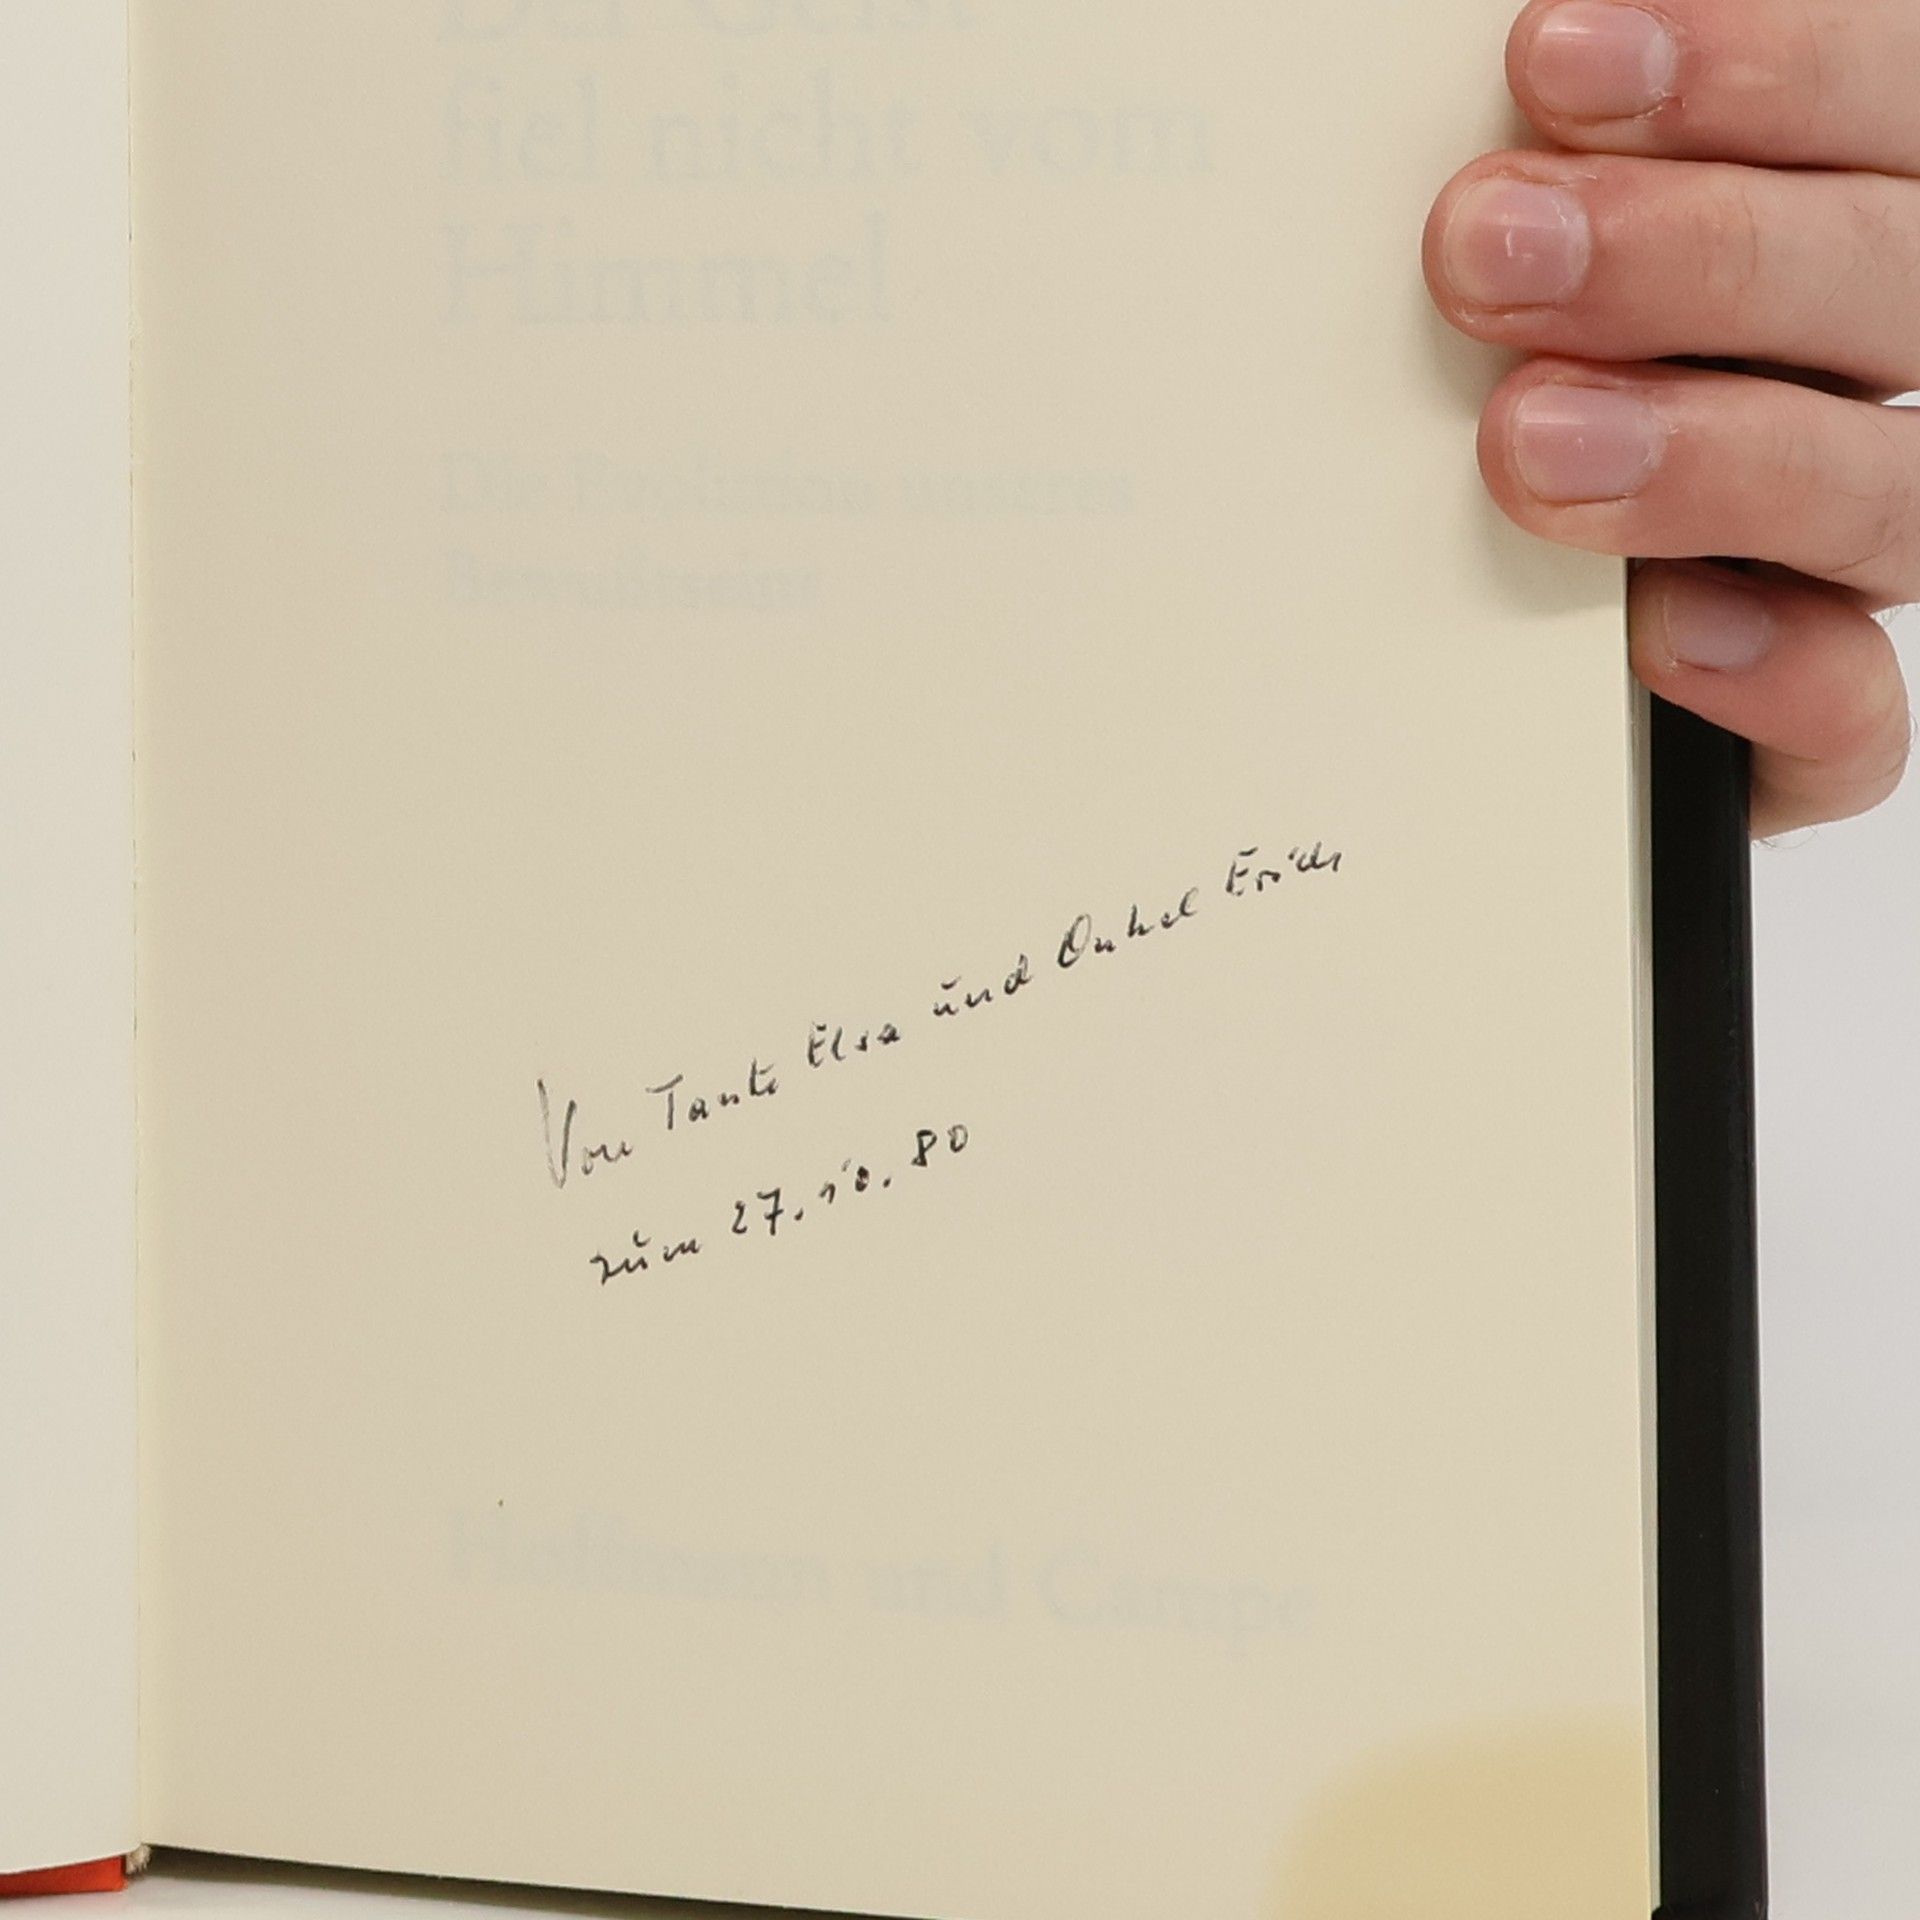 Der Geist
fiel nicht vom
Himmel
Die Evolution unseres
Bewußtseins
Von Tante Elsa und Onkel Erich
zum 27. 10. 80
Hoffmann und Campe